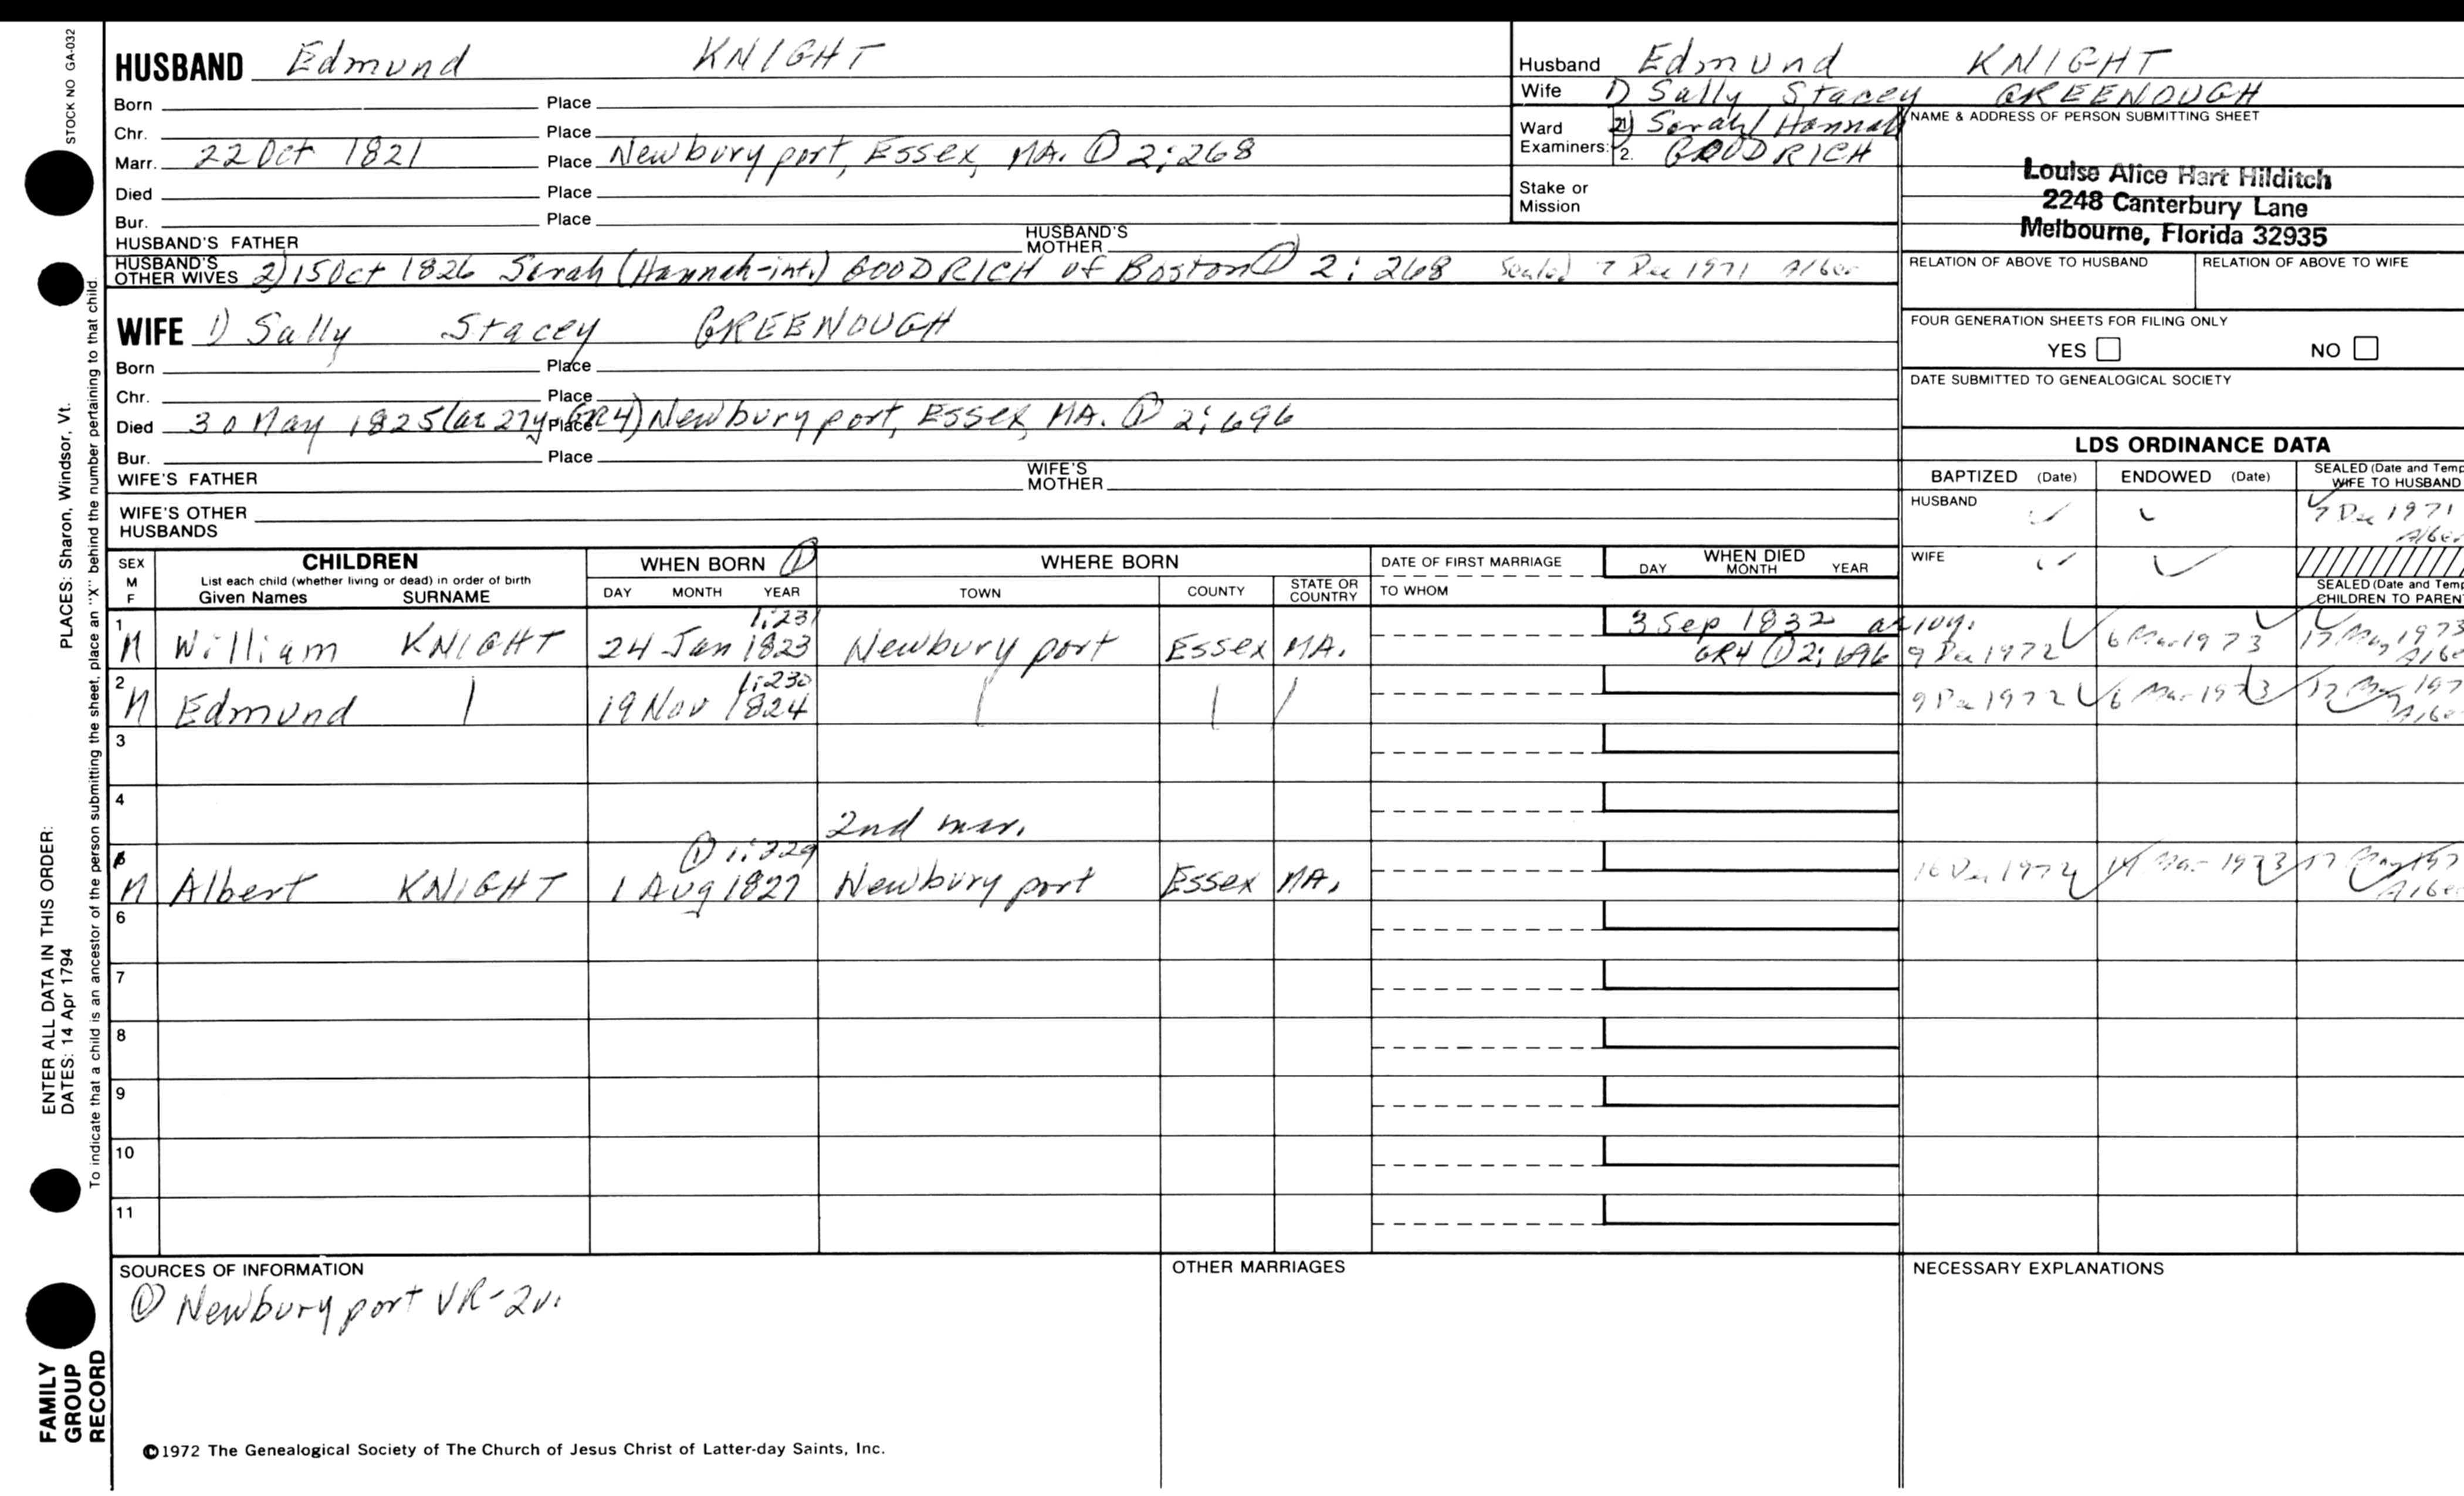 STOCK NO GA-032
PLACES: Sharon, Windsor, Vt.
ENTER ALL DATA IN THIS ORDER:
DATES: 14 Apr 1794
To indicate that a child is an ancestor of the person submitting the sheet, place an "X" behind the number pertaining to that child.
FAMILY
GROUP
RECORD
HUSBAND Edmund KNIGHT
Born Place
Chr. Place
Marr. 22 Oct 1821 Place Newburyport, Essex, MA. ① 2:268
Died Place
Bur. Place
HUSBAND'S FATHER HUSBAND'S MOTHER
HUSBAND'S OTHER WIVES 2) 15 Oct 1826 Sarah (Hannah-int.) GOODRICH of Boston ① 2:268 Sealed 7 Dec 1971 Alber
WIFE 1) Sally Stacey GREENOUGH
Born Place
Chr. Place
Died 30 May 1825 (ae 27y-GR4) Place Newburyport, Essex, MA. ① 2:696
Bur. Place
WIFE'S FATHER WIFE'S MOTHER
WIFE'S OTHER HUSBANDS
Husband Edmund KNIGHT
Wife 1) Sally Stacey GREENOUGH
Ward Examiners: 2) Sarah/Hannah
2. GOODRICH
Stake or Mission
NAME & ADDRESS OF PERSON SUBMITTING SHEET
Louise Alice Hart Hilditch
2248 Canterbury Lane
Melbourne, Florida 32935
RELATION OF ABOVE TO HUSBAND RELATION OF ABOVE TO WIFE
FOUR GENERATION SHEETS FOR FILING ONLY
YES NO
DATE SUBMITTED TO GENEALOGICAL SOCIETY
LDS ORDINANCE DATA
BAPTIZED (Date) ENDOWED (Date) SEALED (Date and Temp
WIFE TO HUSBAND
HUSBAND ✓ ✓ ✓ 7 Dec 1971
Alber
WIFE ✓ ✓
SEALED (Date and Temp
CHILDREN TO PAREN
SEX M F CHILDREN WHEN BORN ① WHERE BORN DATE OF FIRST MARRIAGE WHEN DIED
List each child (whether living or dead) in order of birth
Given Names SURNAME DAY MONTH YEAR TOWN COUNTY STATE OR COUNTRY TO WHOM DAY MONTH YEAR
1 1:231 3 Sep 1832 ae 10y.
M William KNIGHT 24 Jan 1823 Newburyport Essex MA. GR4 ① 2:696 9 Dec 1972 ✓ 6 Mar 1973 ✓ 17 May 1973
Alber
2 1:230
M Edmund 19 Nov 1824 9 Dec 1972 ✓ 6 Mar 1973 ✓ 17 May 197
Alber
3
4
2nd mar.
5 ① 1:229
M Albert KNIGHT 1 Aug 1827 Newburyport Essex MA. 16 Dec 1972 ✓ 14 Mar 1973 17 May 197
Alber
6
7
8
9
10
11
SOURCES OF INFORMATION OTHER MARRIAGES NECESSARY EXPLANATIONS
① Newburyport VR-2v.
©1972 The Genealogical Society of The Church of Jesus Christ of Latter-day Saints, Inc.